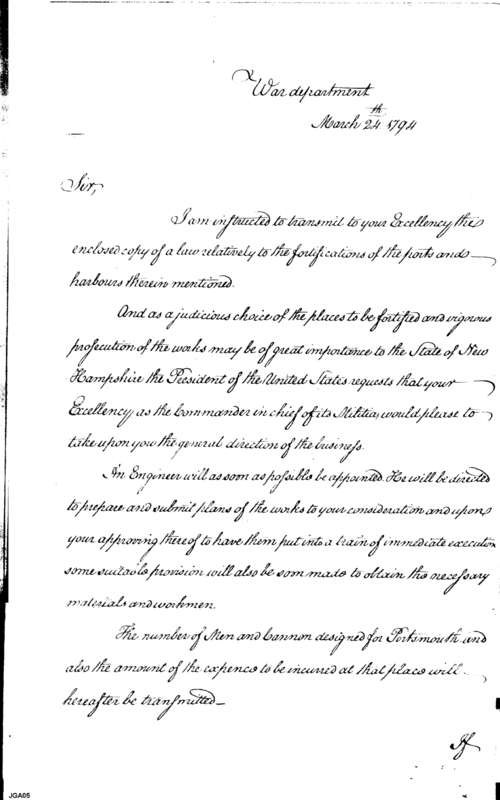 War department
March 24th 1794
Sir,
I am instructed to transmit to your Excellency the
enclosed copy of a law relatively to the fortifications of the ports and
harbours therein mentioned.
And as a judicious choice of the places to be fortified and vigorous
prosecution of the works may be of great importance to the State of New
Hampshire the President of the United States requests that your
Excellency as the Commander in chief of its Militia, would please to
take upon you the general direction of the business.
An Engineer will as soon as possible be appointed. He will be directed
to prepare and submit plans of the works to your consideration and upon
your approving thereof to have them put into a train of immediate execution
some suitable provision will also be soon made to obtain the necessary
materials and workmen.
The number of Men and Cannon designed for Portsmouth and
also the amount of the expence to be incurred at that place will
hereafter be transmitted
If
JGA05